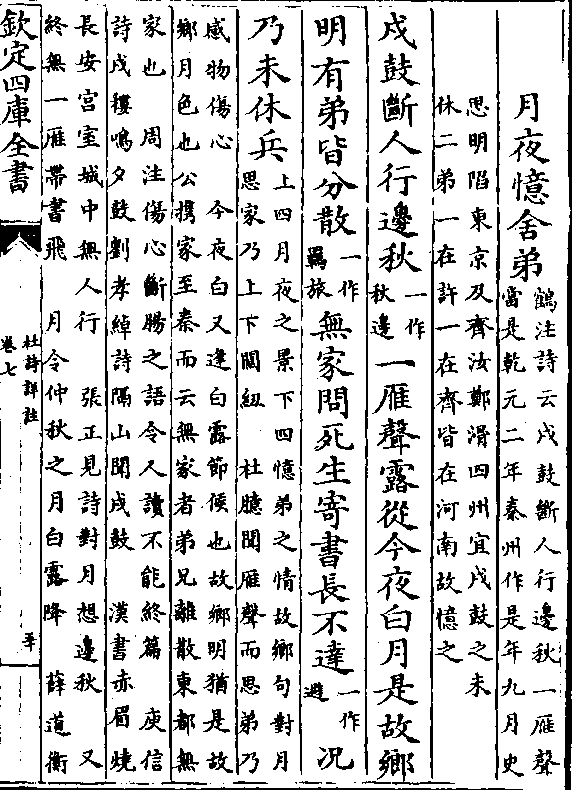 月夜憶舍弟
鶴注詩云戍鼓斷人行邊秋一雁聲
當是乾元二年秦州作是年九月史
思明陷東京及齊汝鄭滑四州宜戍鼓之未
休二弟一在許一在齊皆在河南故憶之
戍鼓斷人行邊秋
一作
秋邊
一雁聲露從今夜白月是故鄉
明有弟皆分散
一作
羈旅
無家問死生寄書長不達
一作
避
况
乃未休兵
上四月夜之景下四憶弟之情故鄉句對月
思家乃上下關紐 杜臆聞雁聲而思弟乃
感物傷心 今夜白又逢白露節候也故鄉明猶是故
鄉月色也公携家至秦而云無家者弟兄離散東都無
家也 周注傷心斷腸之語令人讀不能終篇 庾信
詩戍樓鳴夕鼓劉孝綽詩隔山聞戍鼓 漢書赤眉燒
長安宫室城中無人行 張正見詩對月想邊秋 又
終無一雁帶書飛 月令仲秋之月白露降 薛道衡
欽定四庫全書
杜詩詳註
卷七